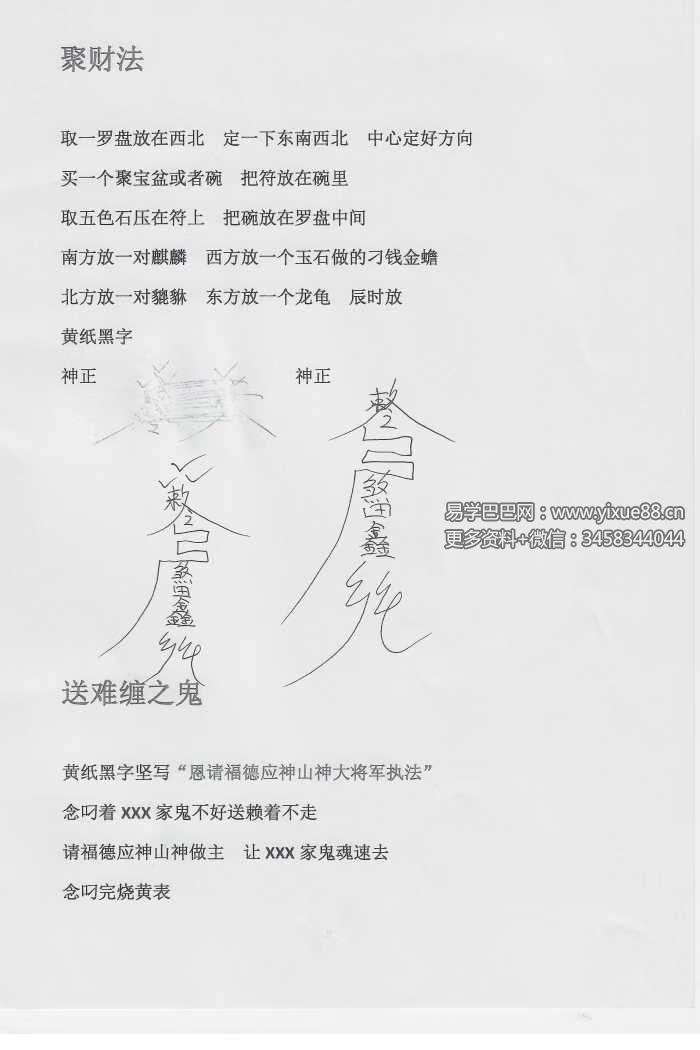 聚财法
取一罗盘放在西北　定一下东南西北　中心定好方向
买一个聚宝盆或者碗　把符放在碗里
取五色石压在符上　把碗放在罗盘中间
南方放一对麒麟　西方放一个玉石做的刁钱金蟾
北方放一对貔貅　东方放一个龙龟　辰时放
黄纸黑字
神正　神正
敕令
敕令
煞
田
鑫
煞
田
鑫
易学巴巴网：www.yixue88.cn
更多资料+微信：3458344044
送难缠之鬼
黄纸黑字坚写“恩请福德应神山神大将军执法”
念叼着 XXX 家鬼不好送赖着不走
请福德应神山神做主　让 XXX 家鬼魂速去
念叼完烧黄表